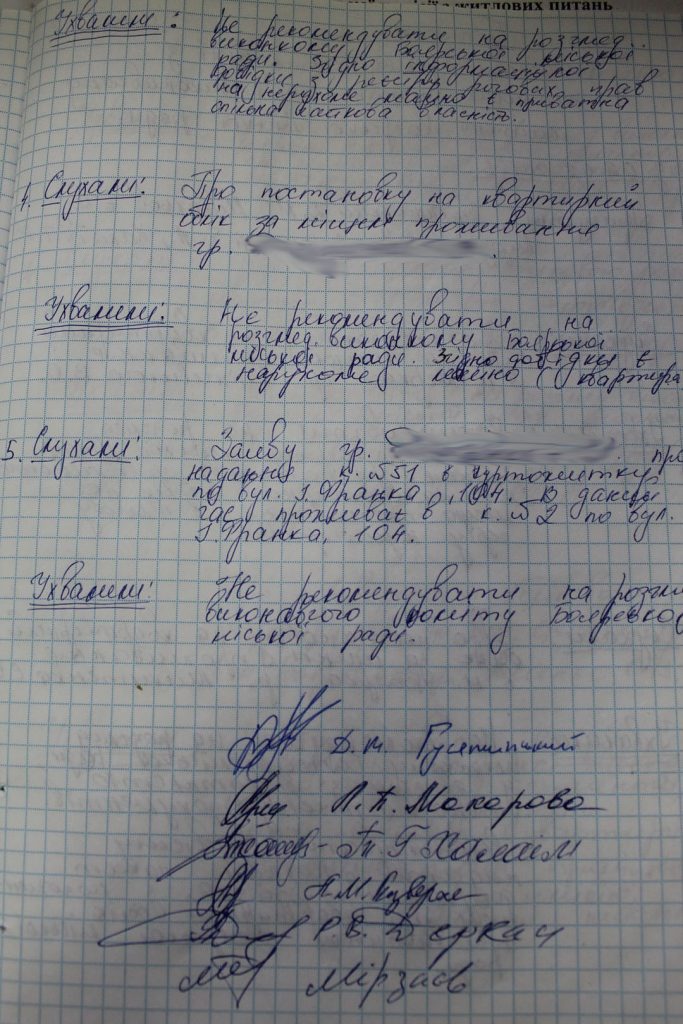 житлових питань
Ухвалили: Не рекомендувати на розгляд
виконкому Боярської міської
ради. Згідно інформаційної
довідки з реєстру речових прав
на нерухоме майно є приватна
спільна часткова власність.
4. Слухали: Про постановку на квартирний
облік за місцем проживання
гр.
Ухвалили: Не рекомендувати на
розгляд виконкому Боярської
міської ради. Згідно довідки є
нерухоме майно (квартира
5. Слухали: Заяву гр. про
надання к. №51 в гуртожитку
по вул. І. Франка, 104. В даний
час проживає в к. №2 по вул.
І. Франка, 104.
Ухвалили: Не рекомендувати на розгля
виконавчого комітету Боярської
міської ради.
Л. П. Макарова
Т. Г. Халаїм
Р. В. Деркач
Мірзаєв